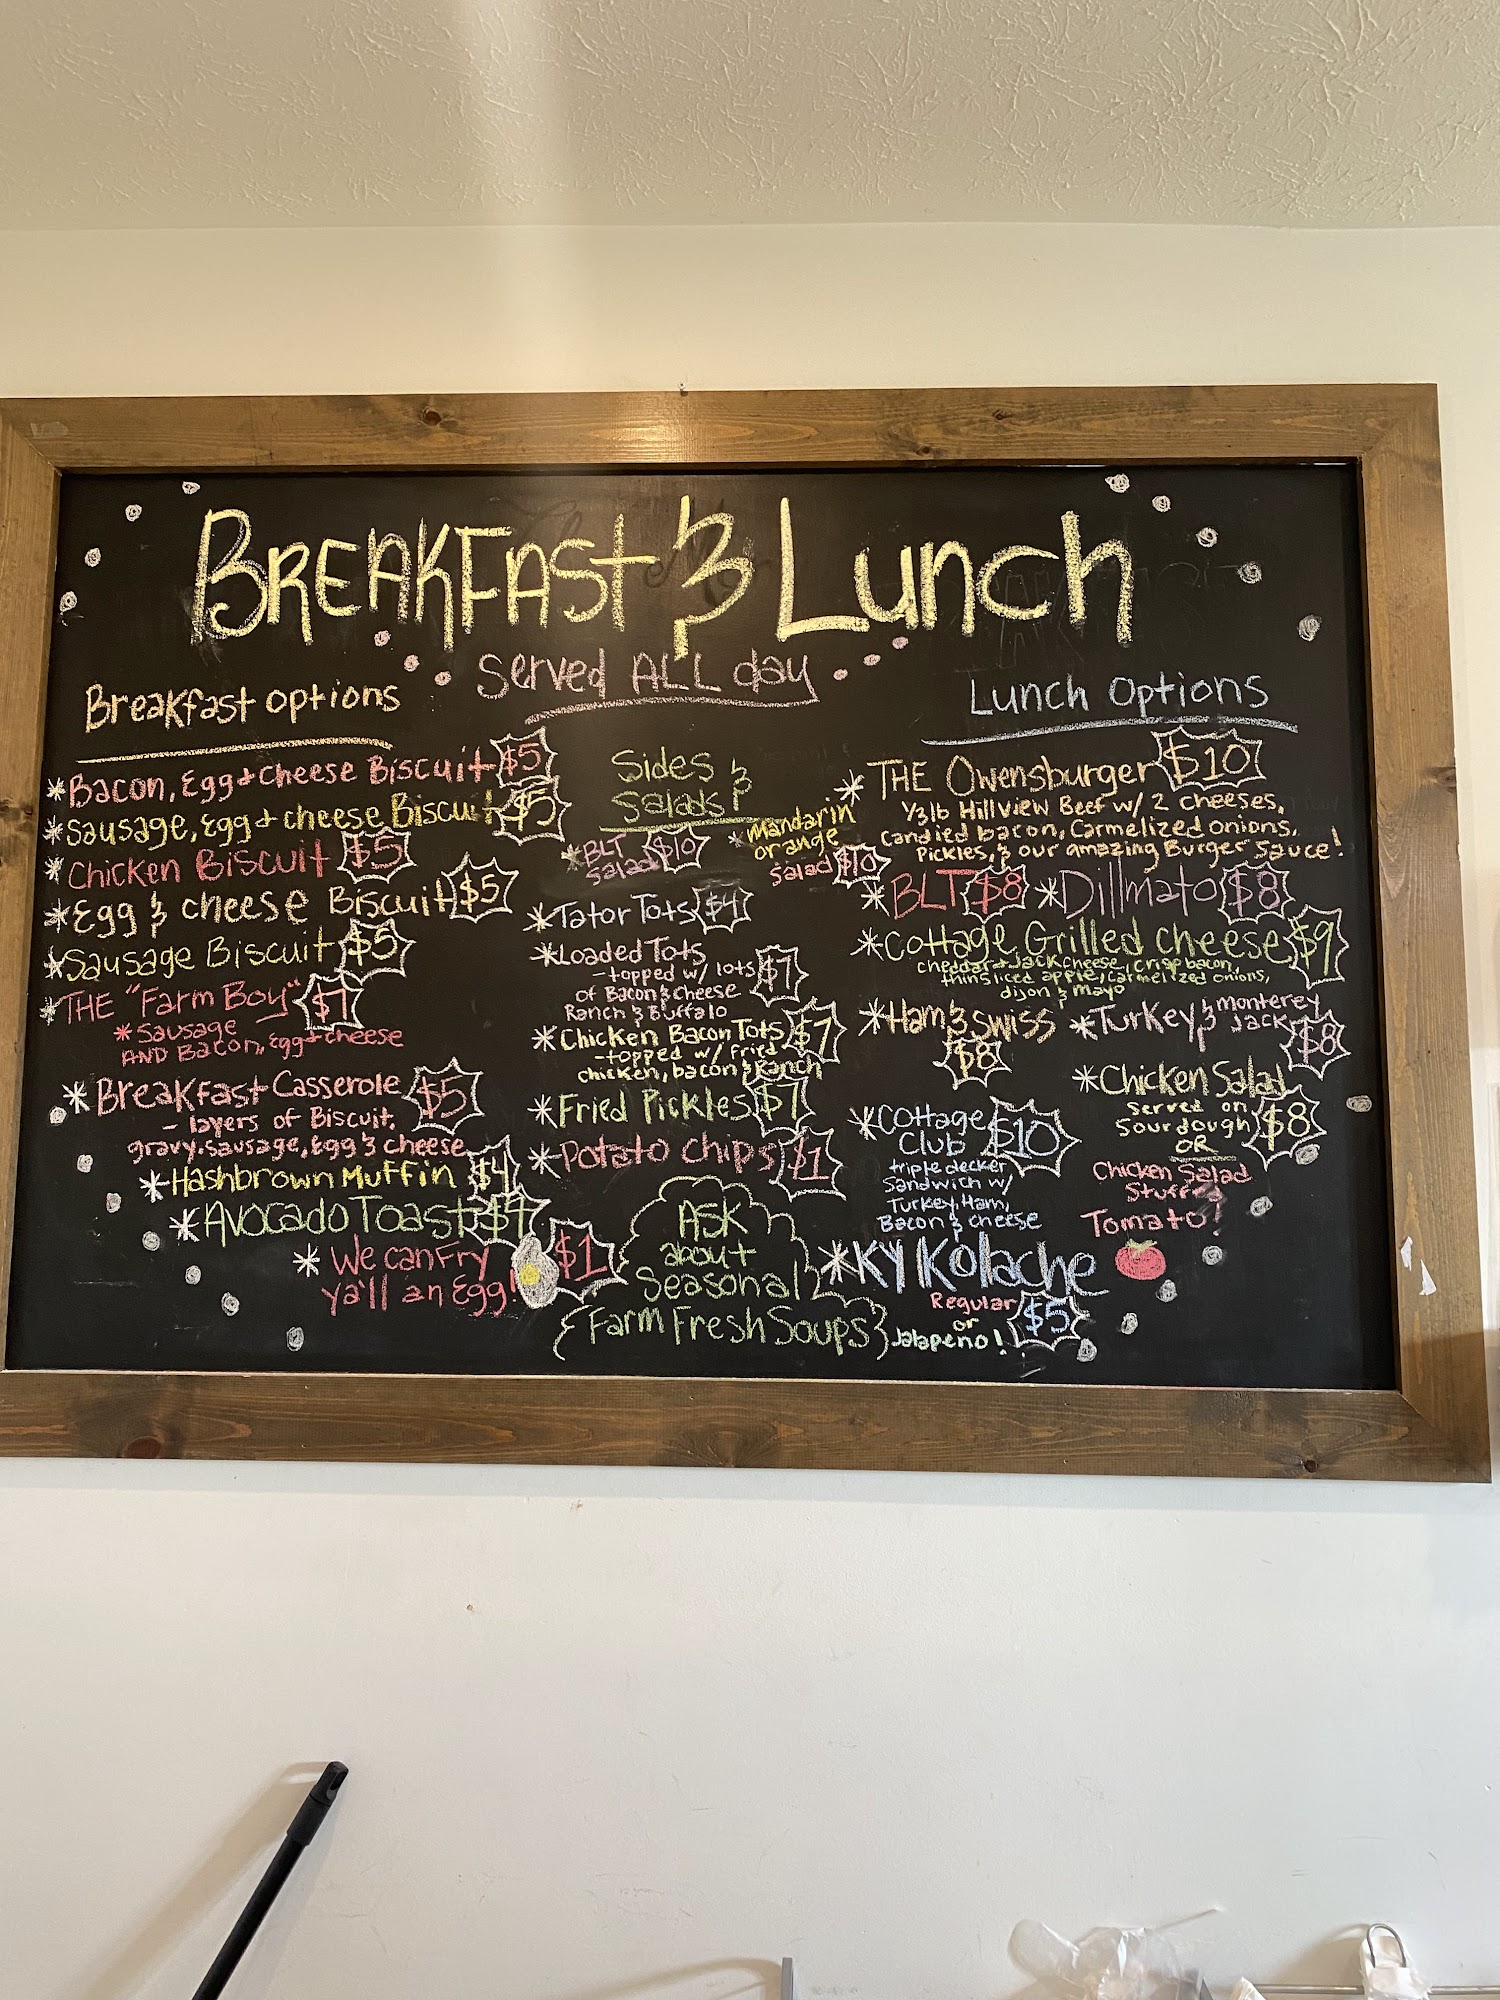 BREAKFAST & Lunch
Served ALL day
Breakfast options
*Bacon, Egg + cheese Biscuit $5
*Sausage, Egg + cheese Biscuit $5
*Chicken Biscuit $5
*Egg & cheese Biscuit $5
*Sausage Biscuit $5
*THE "Farm Boy" $7
*Sausage
AND Bacon, Egg + cheese
*Breakfast Casserole $5
- layers of Biscuit,
gravy, sausage, Egg & cheese
*Hashbrown Muffin $4
*Avocado Toast
* We can Fry
ya'll an Egg! $1
Sides &
Salads
*BLT
Salad $10
*Mandarin
orange
Salad $10
*Tator Tots $4
*Loaded Tots
-topped w/ lots $7
of Bacon & cheese
Ranch & Buffalo
*Chicken Bacon Tots $7
-topped w/ fried
chicken, bacon & Ranch
*Fried Pickles $7
*Potato chips $1
Ask
about
Seasonal
Farm Fresh Soups
Lunch Options
*THE Owensburger $10
1/3 lb Hillview Beef w/ 2 cheeses,
Candied bacon, Carmelized onions,
Pickles, & our amazing Burger Sauce!
*BLT $8 *Dillmato $8
*Cottage Grilled cheese $9
cheddar + Jack cheese, crisp bacon,
thin sliced apple, carmelized onions,
dijon & mayo
*Ham & Swiss
$8
*Turkey & monterey
Jack
$8
*Chicken Salad
Served on
Sourdough $8
OR
Chicken Salad
Stuffed
Tomato!
*Cottage
Club $10
triple decker
Sandwich w/
Turkey, Ham,
Bacon & cheese
*KY Kolache
Regular
or $5
Jalapeno!